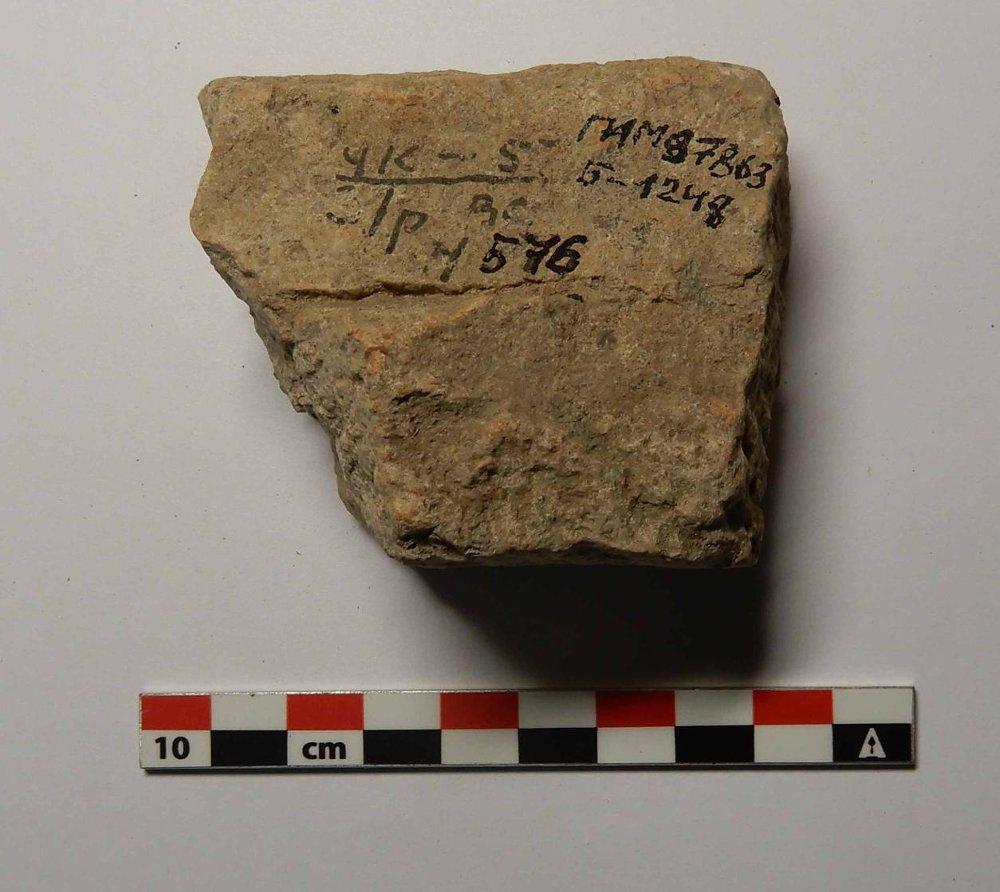 УК - 5
Э/р
№ 576
ГИМ 87863
Б-1248
10 cm
A